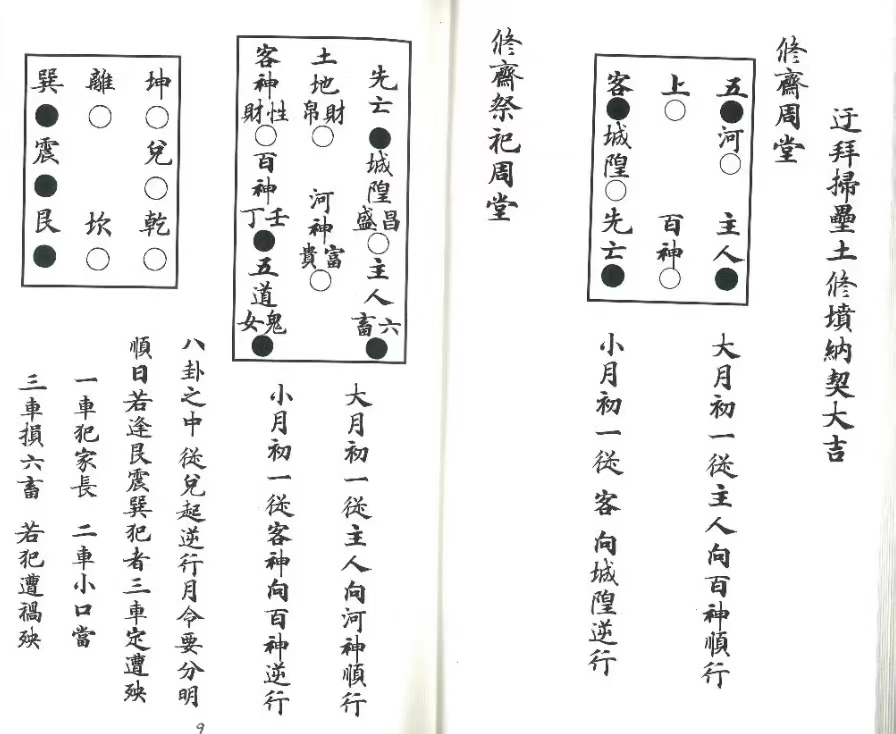 迂拜掃壘土修墳納契大吉
修齋周堂
五 河 主人
上 百神
客 城隍 先亡
大月初一從主人向百神順行
小月初一從客向城隍逆行
修齋祭祀周堂
先亡 城隍 昌盛 主人 六畜
土地 財帛 河神 富貴
客神 性財 百神 壬丁 五道 鬼女
大月初一從主人向河神順行
小月初一從客神向百神逆行
坤 兌 乾
離 坎
巽 震 艮
八卦之中從兌起逆行月令要分明
順日若逢艮震巽犯者三車定遭殃
一車犯家長 二車小口當
三車損六畜 若犯遭禍殃
9